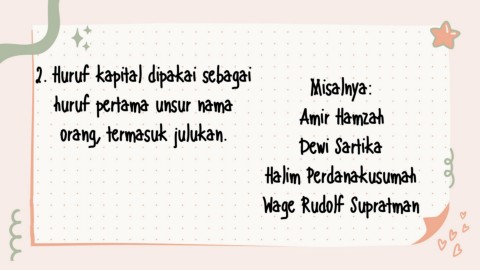 2. Huruf kapital dipakai sebagai
huruf pertama unsur nama
orang, termasuk julukan.
Misalnya:
Amir Hamzah
Dewi Sartika
Halim Perdanakusumah
Wage Rudolf Supratman